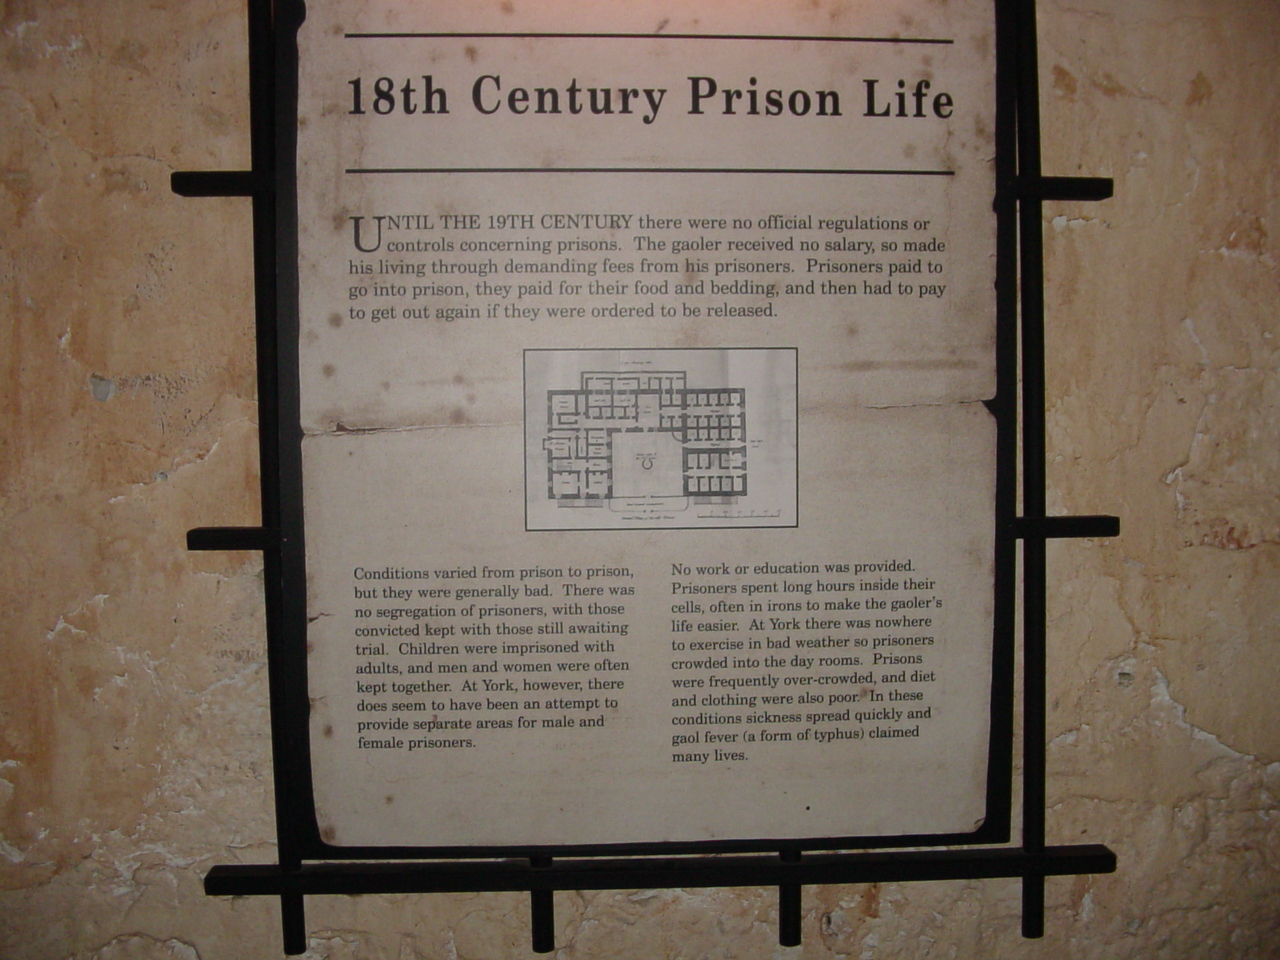 18th Century Prison Life
UNTIL THE 19TH CENTURY there were no official regulations or
controls concerning prisons. The gaoler received no salary, so made
his living through demanding fees from his prisoners. Prisoners paid to
go into prison, they paid for their food and bedding, and then had to pay
to get out again if they were ordered to be released.
Conditions varied from prison to prison,
but they were generally bad. There was
no segregation of prisoners, with those
convicted kept with those still awaiting
trial. Children were imprisoned with
adults, and men and women were often
kept together. At York, however, there
does seem to have been an attempt to
provide separate areas for male and
female prisoners.
No work or education was provided.
Prisoners spent long hours inside their
cells, often in irons to make the gaoler's
life easier. At York there was nowhere
to exercise in bad weather so prisoners
crowded into the day rooms. Prisons
were frequently over-crowded, and diet
and clothing were also poor. In these
conditions sickness spread quickly and
gaol fever (a form of typhus) claimed
many lives.